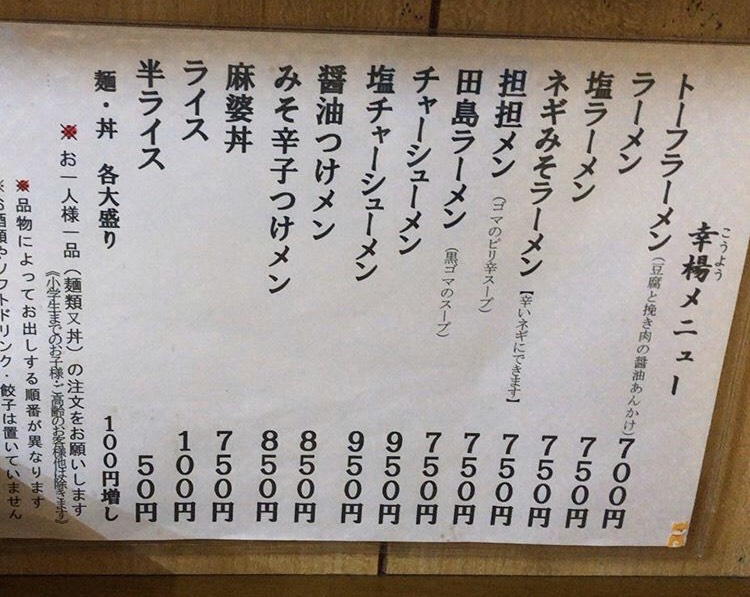 幸楊メニュー
こうよう
トーフラーメン(豆腐と挽き肉の醤油あんかけ) 700円
ラーメン 750円
塩ラーメン 750円
ネギみそラーメン【辛いネギにできます】 750円
担担メン(ゴマのピリ辛スープ) 750円
田島ラーメン(黒ゴマのスープ) 750円
チャーシューメン 950円
塩チャーシューメン 950円
醤油つけメン 850円
みそ辛子つけメン 850円
麻婆丼 750円
ライス 100円
半ライス 50円
麺・丼 各大盛り 100円増し
※お一人様一品(麺類又丼)の注文をお願いします
《小学生までのお子様・ご高齢のお客様他は除きます》
※品物によってお出しする順番が異なります
※お酒類やソフトドリンク・餃子は置いていません